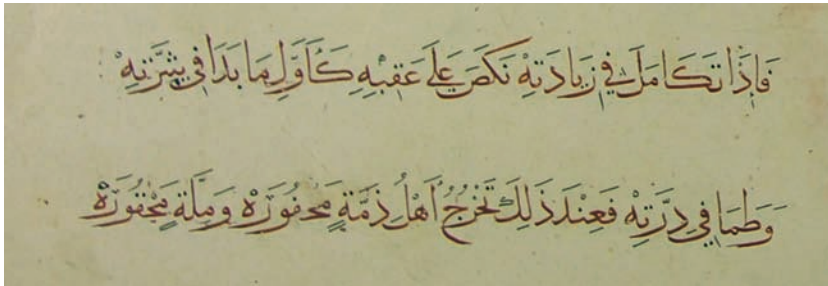 فَإِذَا تَكَامَلَ فِي زِيَادَتِهْ نَكَصَ عَلَى عَقِبِهِ كَأَوَّلِ مَا بَدَا فِي شِرَّتِهْ
وَطَمَا فِي دِرَّتِهْ فَعِنْدَ ذَلِكَ تَخْرُجُ أَهْلُ ذِمَّةٍ مَخفُورَهْ وَمِلَّةٍ مَحْقُورَهْ